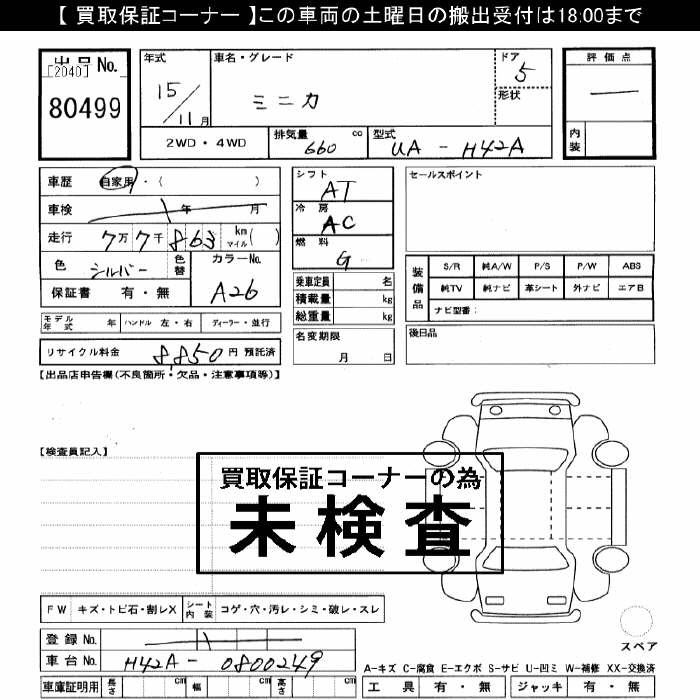 【 買取保証コーナー 】この車両の土曜日の搬出受付は18:00まで
出品 No.
[2040]
80499
年式 車名・グレード ドア 5 評価点
15/11月 ミニカ 形状 ―
2WD・4WD 排気量 660 cc 型式 UA-H42A 内装
車歴 自家用・( )
車検 年 月
走行 7万7千863 km マイル ( )
色 シルバー 色替 カラーNo.
保証書 有・無 A26
モデル年式 年 ハンドル 左・右 ディーラー・並行
リサイクル料金 8,850円 預託済
シフト AT
冷房 AC
燃料 G
乗車定員 名
積載量 kg
総重量 kg
名変期限
月 日
セールスポイント
装備品 S/R 純A/W P/S P/W ABS
純TV 純ナビ 革シート 外ナビ エアB
ナビ型番:
後日品
【出品店申告欄(不良箇所・欠品・注意事項等)】
【検査員記入】
買取保証コーナーの為
未検査
FW キズ・トビ石・割レX シート内装 コゲ・穴・汚レ・シミ・破レ・スレ
登録 No.
車台 No. H42A-0800249
車庫証明用 長さ cm 幅 cm 高さ cm
スペア
A-キズ C-腐食 E-エクボ S-サビ U-凹ミ W-補修 XX-交換済
工具 有・無 ジャッキ 有・無